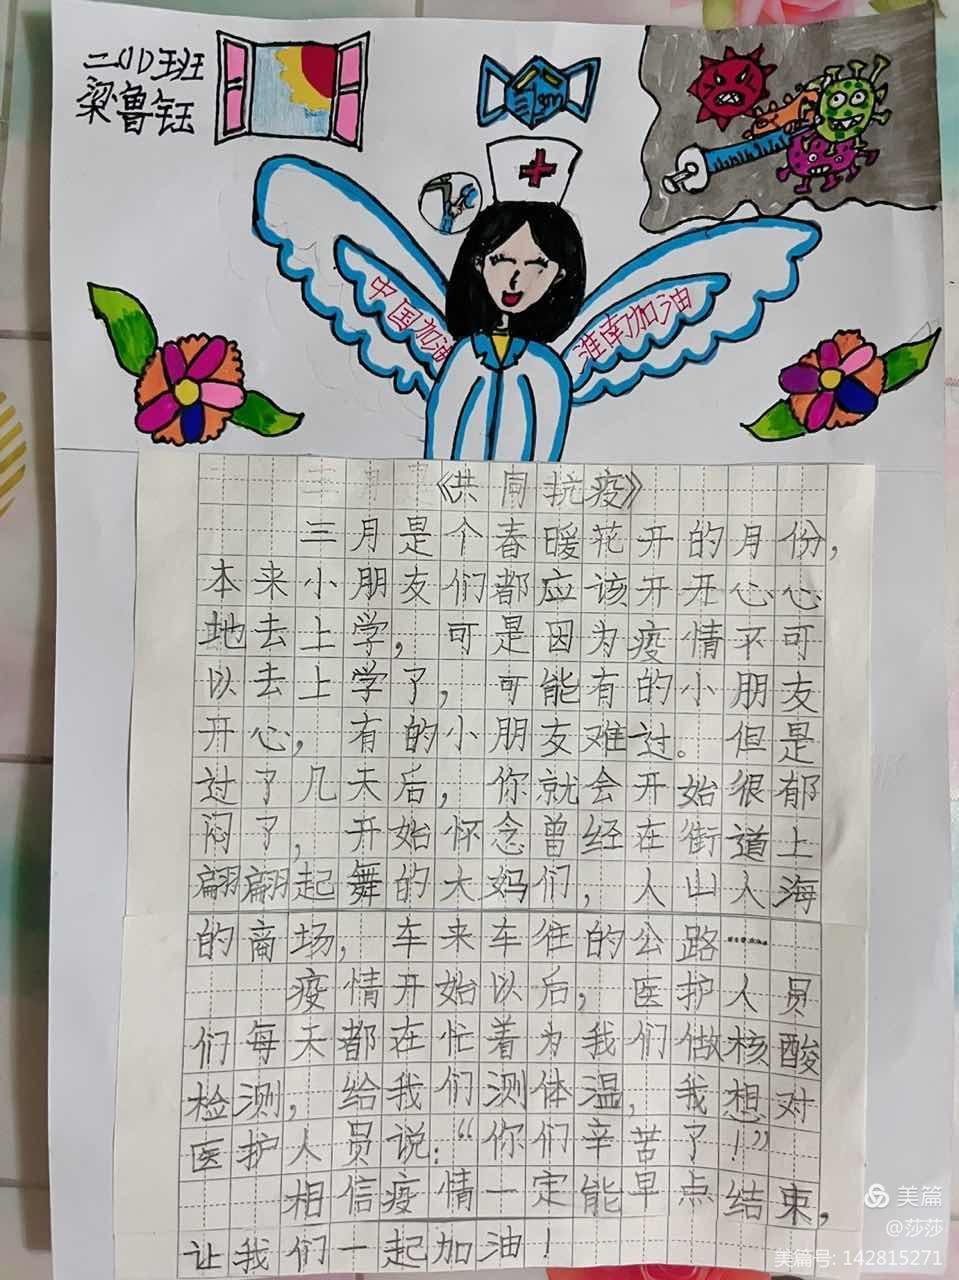 二(1)班
梁鲁钰
3m
中国加油
淮南加油
《共同抗疫》
三月是个春暖花开的月份，
本来小朋友们都应该开开心心
地去上学，可是因为疫情不可
以去上学了，可能有的小朋友
开心，有的小朋友难过。但是
过了几天后，你就会开始很郁
闷了，开始怀念曾经在街道上
翩翩起舞的大妈们，人山人海
的商场，车来车往的公路……
疫情开始以后，医护人员
们每天都在忙着为我们做核酸
检测，给我们测体温，我想对
医护人员说：“你们辛苦了！”
相信疫情一定能早点结束，
让我们一起加油！
美篇
@莎莎
美篇号: 142815271